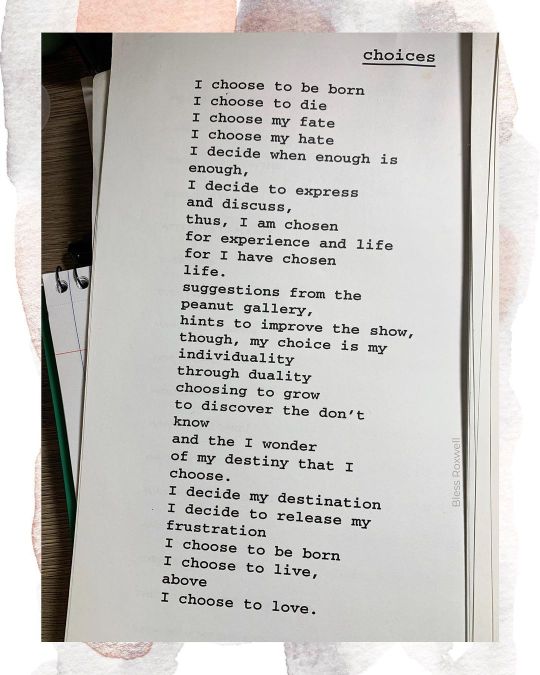 choices
I choose to be born
I choose to die
I choose my fate
I choose my hate
I decide when enough is
enough,
I decide to express
and discuss,
thus, I am chosen
for experience and life
for I have chosen
life.
suggestions from the
peanut gallery,
hints to improve the show,
though, my choice is my
individuality
through duality
choosing to grow
to discover the don't
know
and the I wonder
of my destiny that I
choose.
I decide my destination
I decide to release my
frustration
I choose to be born
I choose to live,
above
I choose to love.
Bless Roxwell